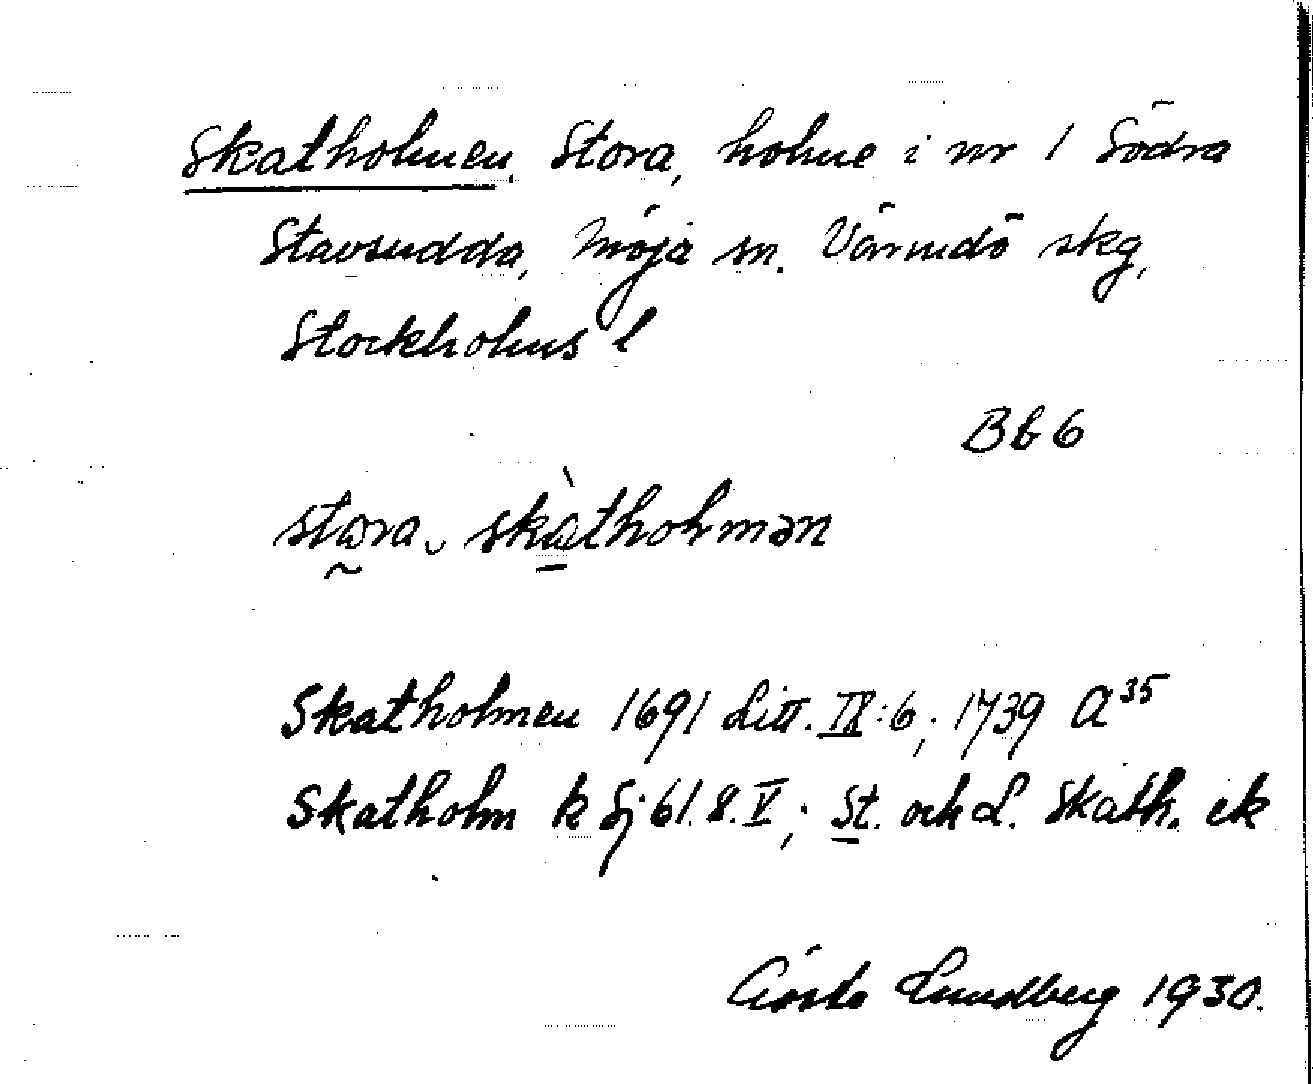 Skatholmen, Stora, holme i nr 1 Södra
Stavsudda, Möja sn. Värmdö skg,
Stockholms l
Bb 6
stωra ska̠thoɫmən
Skatholmen 1691 Litt. IX:6; 1739 A³⁵
Skatholm k Sj 61. 8. V; St. och L. Skath. ek
Gösta Lundberg 1930.